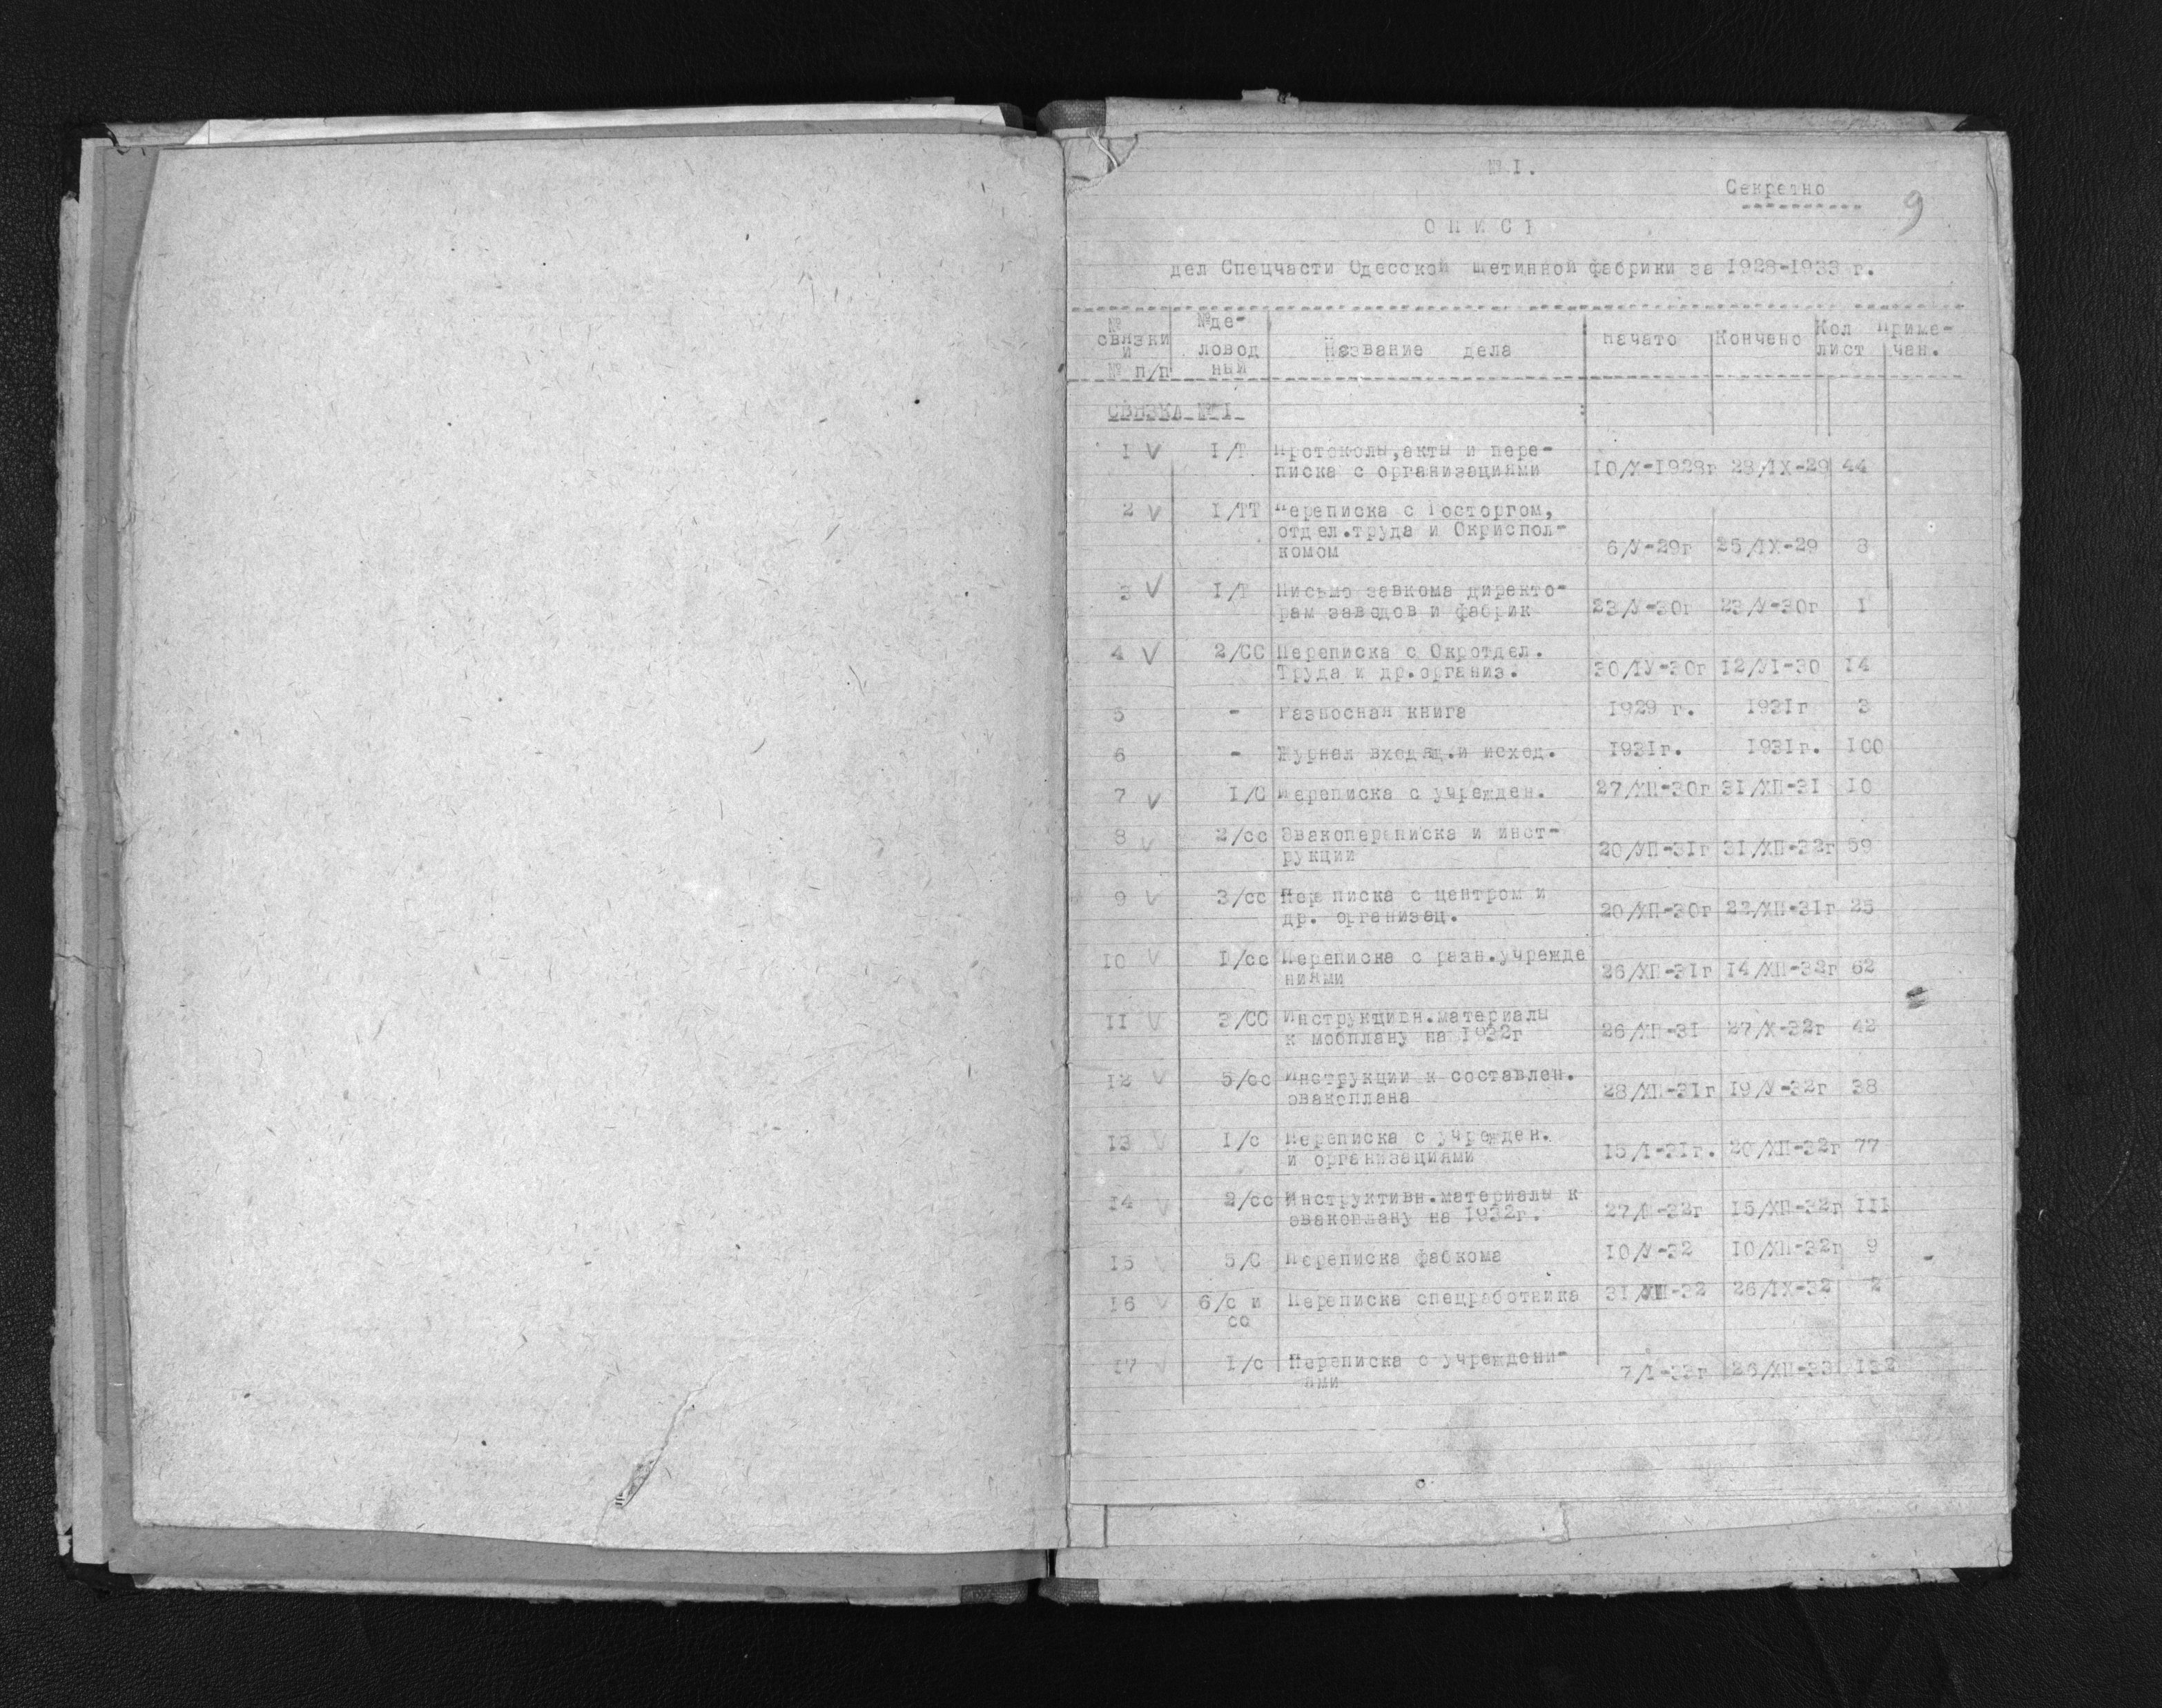 № I.
Секретно
9
О П И С Ь
дел Спецчасти Одесской щетинной фабрики за 1928-1933 г.
№ связки и № п/п | №де-ловод ный | Название дела | Начато | Кончено | Кол лист | Приме-чан.
СВЯЗКА № I
1 V I/Т Протоколы,акты и пере-
писка с организациями 10/X-1928г 28/IX-29 44
2 V I/ТТ Переписка с Госторгом,
отдел.труда и Окриспол-
комом 6/У-29г 25/IX-29 8
3 V I/Т Письмо завкома директо-
рам заводов и фабрик 23/У-30г 23/У-30г I
4 V 2/СС Переписка с Окротдел.
Труда и др.организ. 30/IУ-30г 12/УI-30 14
5 - Разносная книга 1929 г. 1931г 3
6 - Журнал входящ.и исход. 1931г. 1931г. 100
7 V I/С Переписка с учрежден. 27/ХП-30г 31/ХП-31 10
8 V 2/сс Эвакопереписка и инст-
рукции 20/УП-31г 31/ХП-32г 59
9 V 3/сс Пере писка с центром и
др. организац. 20/ХП-30г 22/ХП-31г 25
10 V I/сс Переписка с разн.учрежде
ниями 26/ХП-31г 14/ХП-32г 62
11 V 3/СС Инструктивн.материалы
к мобплану на 1932г 26/ХП-31 27/Х-32г 42
12 V 5/сс Инструкции к составлен.
эвакоплана 28/ХП-31г 19/У-32г 38
13 V I/с Переписка с учрежден.
и организациями 15/I-31г. 20/ХП-32г 77
14 V 2/сс Инструктивн.материалы к
эвакоплану на 1932г. 15/ХП-32г 111
15 V 5/С Переписка фабкома 10/У-32 10/ХП-32г 9
16 V 6/с и Переписка спецработника 26/IX-32 2
сс
17 V I/с Переписка с учреждени-
ями 7/I-33г 26/ХП-33 132